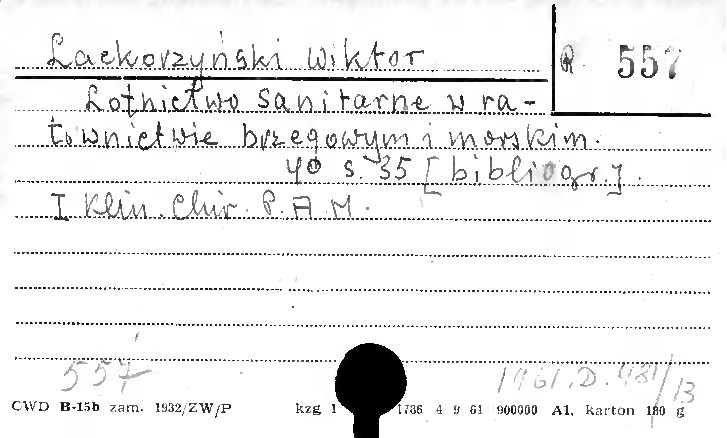 Lackorzyński Wiktor
R 557
Lotnictwo sanitarne w ra-
townictwie brzegowym i morskim.
4° s. 35 [bibliogr.].
I Klin. Chir. P.A.M.
557
1961.D.481/13
CWD B-15b zam. 1932/ZW/P kzg 1 1786 4 9 61 900000 A1, karton 180 g